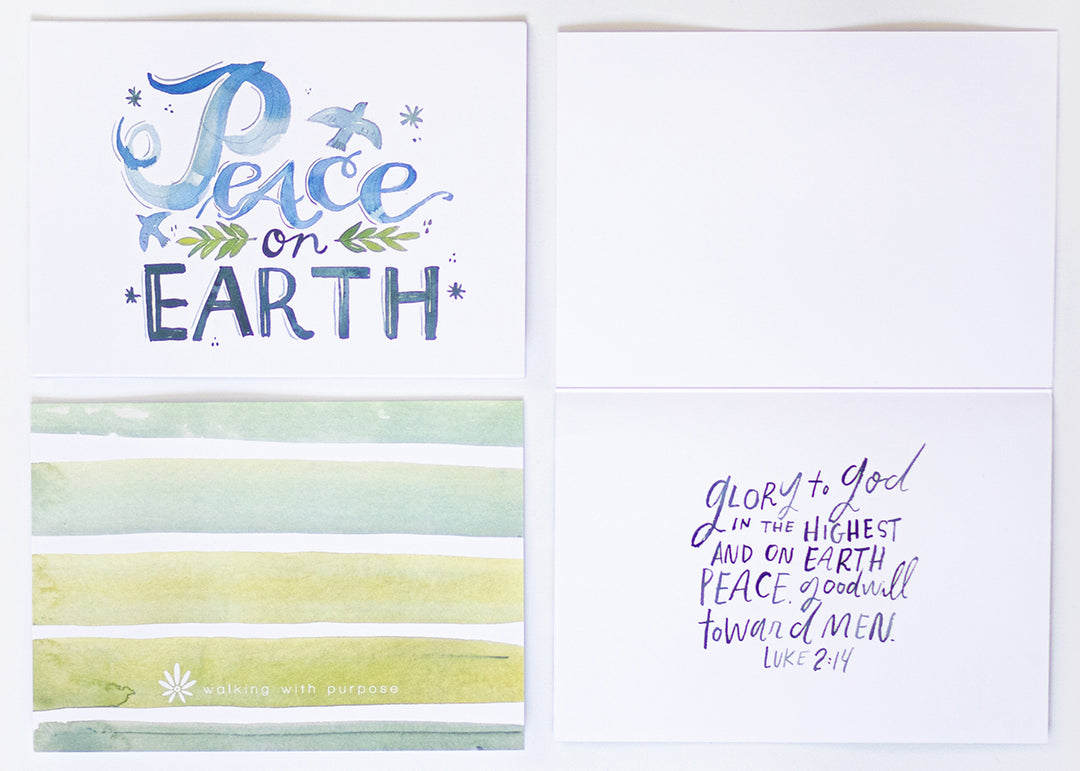 Peace
on
EARTH
walking with purpose
glory to god
IN THE HIGHEST
AND ON EARTH
PEACE. goodwill
toward MEN.
LUKE 2:14